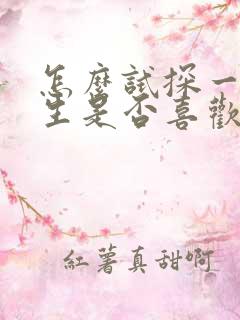 怎麼試探一
生是否喜歡
紅薯真甜啊